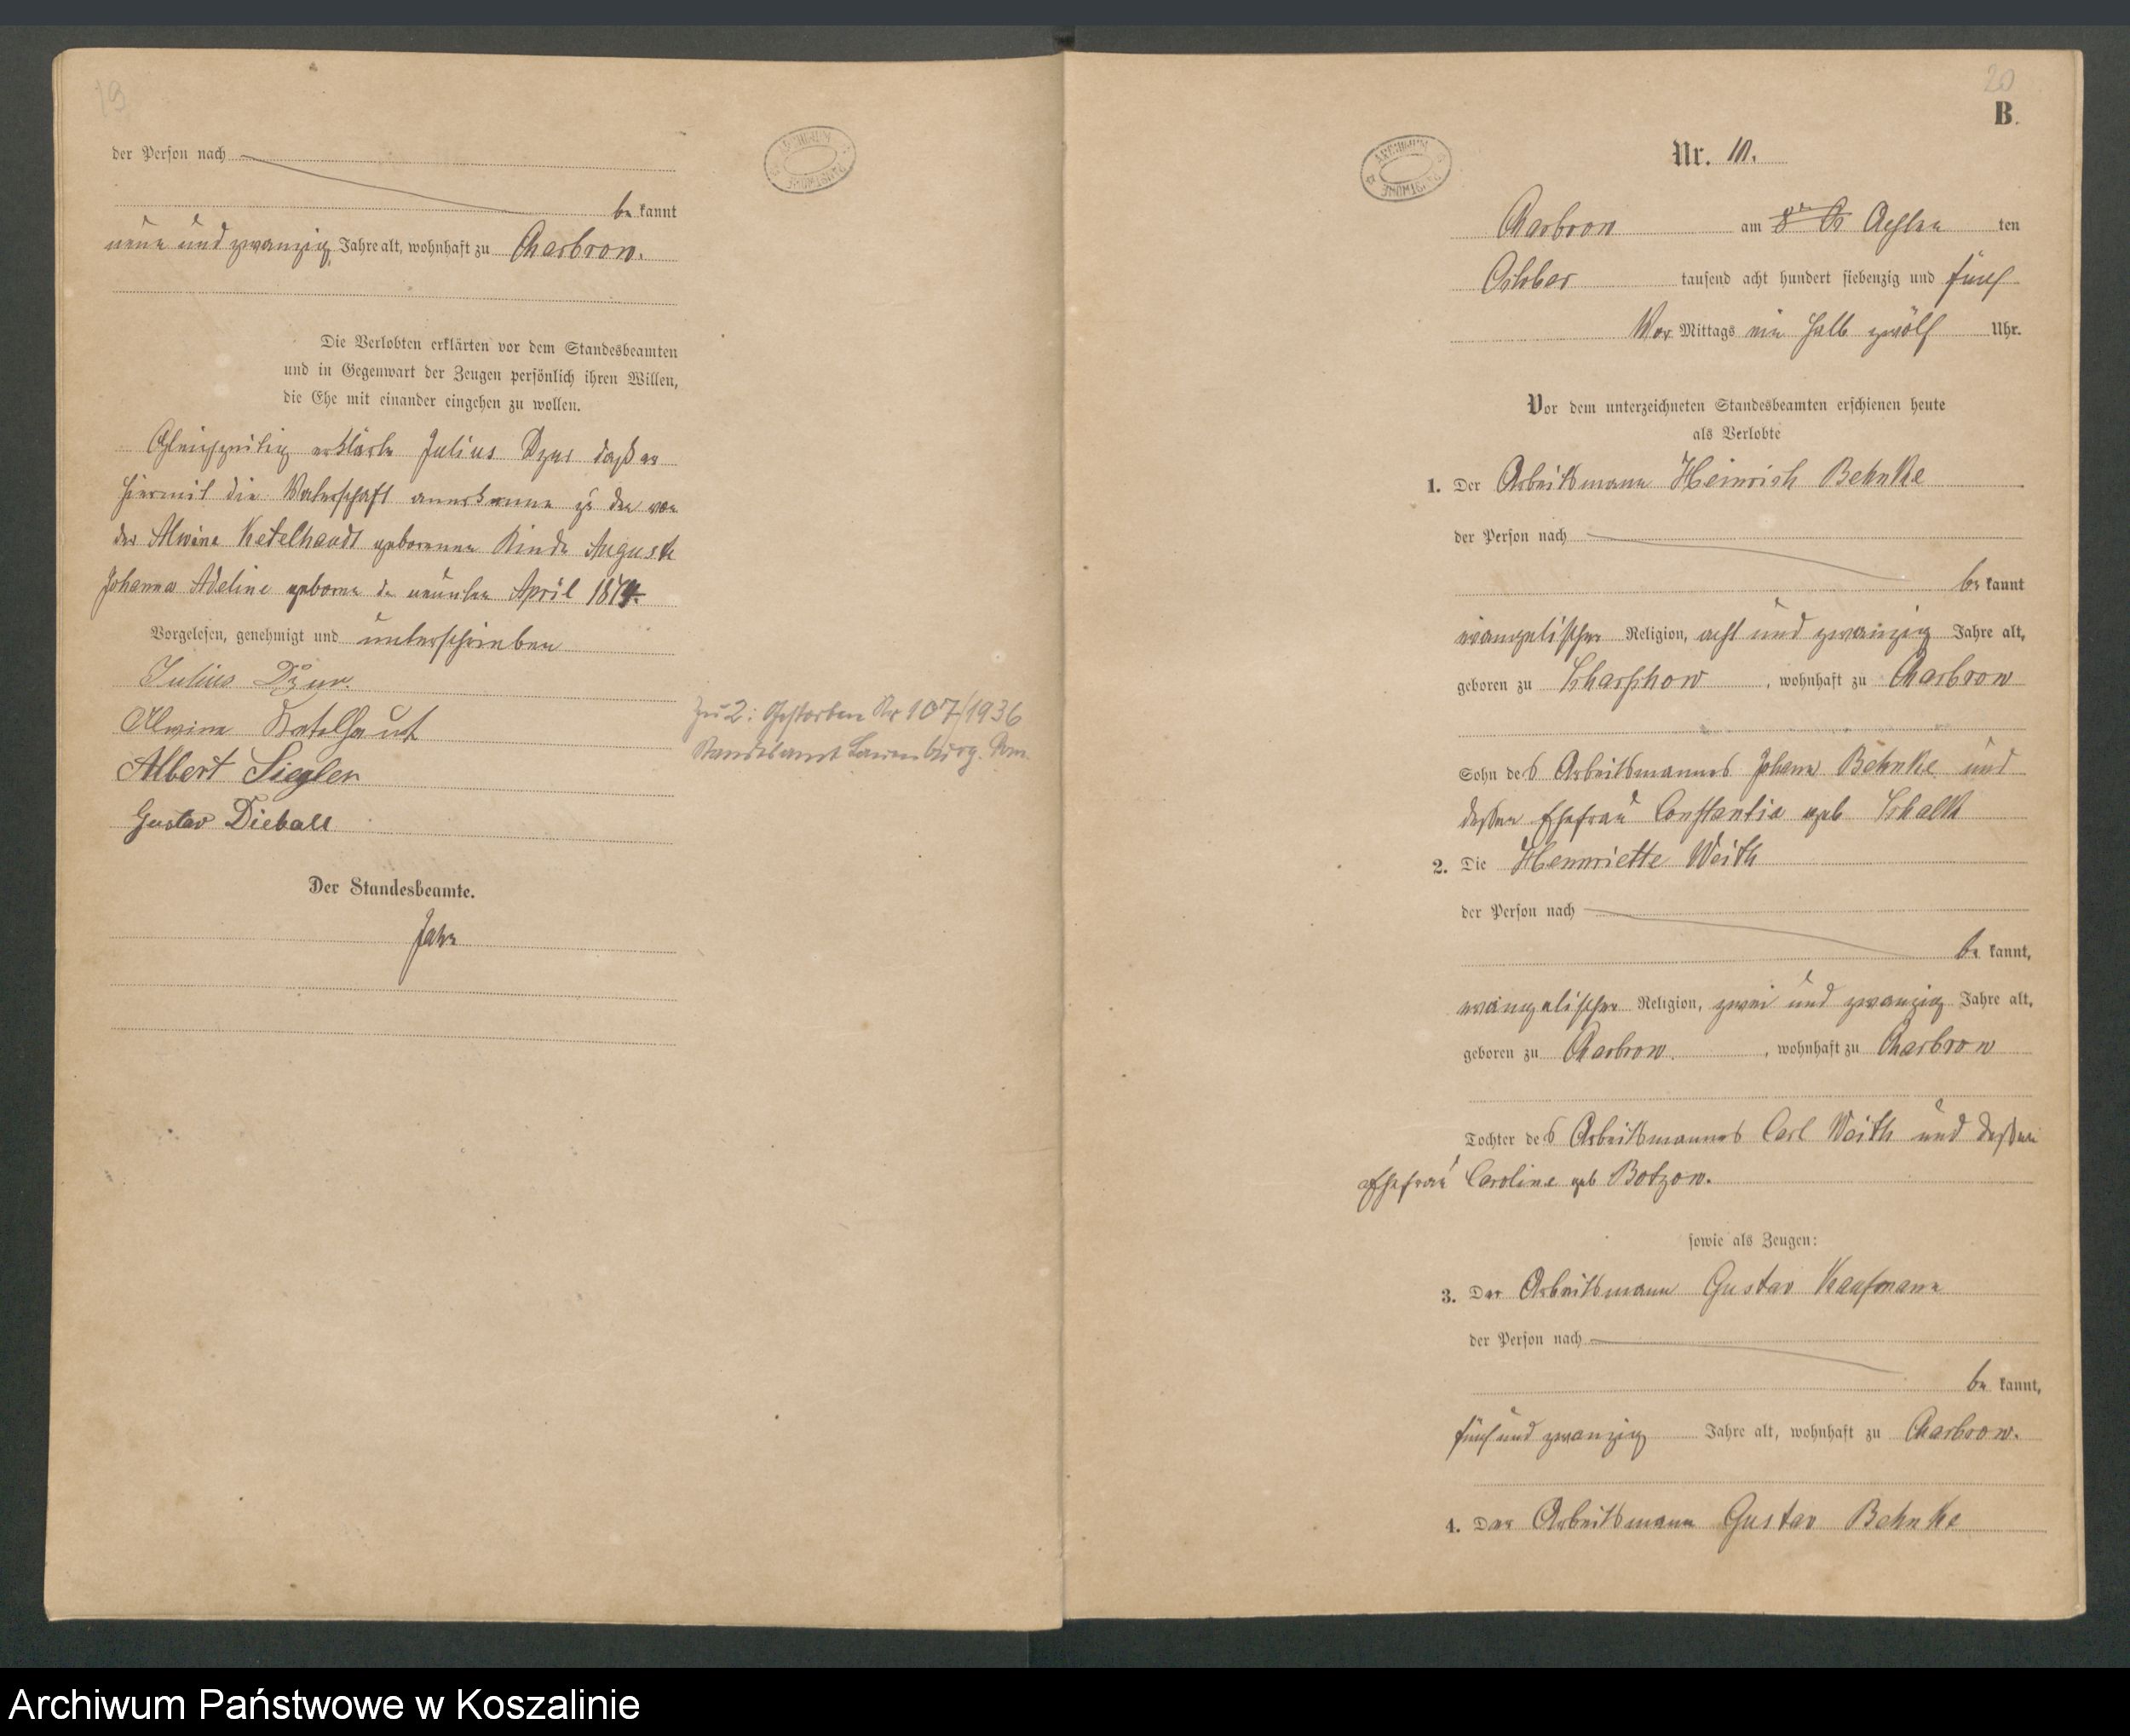 19
der Person nach
be kannt
neun und zwanzig Jahre alt, wohnhaft zu Charbrow.
Die Verlobten erklärten vor dem Standesbeamten
und in Gegenwart der Zeugen persönlich ihren Willen,
die Ehe mit einander eingehen zu wollen.
Gleichzeitig erklärte Julius Dzur daß er
hiermit die Vaterschaft anerkenne zu den von
der Alwine Ketelhaudt geborenen Kinde Auguste
Johanna Adeline geboren den neunten April 1874.
Vorgelesen, genehmigt und unterschrieben
Julius Dzur.
Alwine Ketelhaut
Albert Siegler
Gustav Dieball
Der Standesbeamte.
Jahn
Zu 2: Gestorben Nr 107/1936
Standesamt Lauenburg. Pom.
20
B.
Nr. 10.
Charbrow am Achten ten
October tausend acht hundert siebenzig und fünf
Vor Mittags ein halb zwölf Uhr.
Vor dem unterzeichneten Standesbeamten erschienen heute
als Verlobte
1. Der Arbeitsmann Heinrich Behnke
der Person nach
be kannt
evangelischer Religion, acht und zwanzig Jahre alt,
geboren zu Scharschow, wohnhaft zu Charbrow
Sohn des Arbeitsmannes Johann Behnke und
deßen Ehefrau Constantia geb Schalk
2. Die Henriette Weith
der Person nach
be kannt,
evangelischer Religion, zwei und zwanzig Jahre alt,
geboren zu Charbrow., wohnhaft zu Charbrow
Tochter des Arbeitsmannes Carl Weith und deßen
Ehefrau Caroline geb Botzow.
sowie als Zeugen:
3. Der Arbeitsmann Gustav Kaufmann
der Person nach
be kannt,
fünf und zwanzig Jahre alt, wohnhaft zu Charbrow.
4. Der Arbeitsmann Gustav Behnke
Archiwum Państwowe w Koszalinie